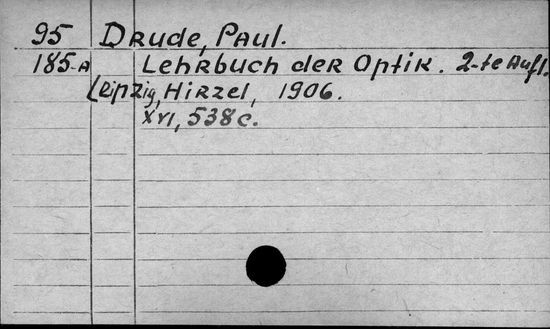 95 Drude, Paul.
185-A Lehrbuch der Optik. 2-te Aufl.
Leipzig, Hirzel, 1906.
XVI, 538 c.